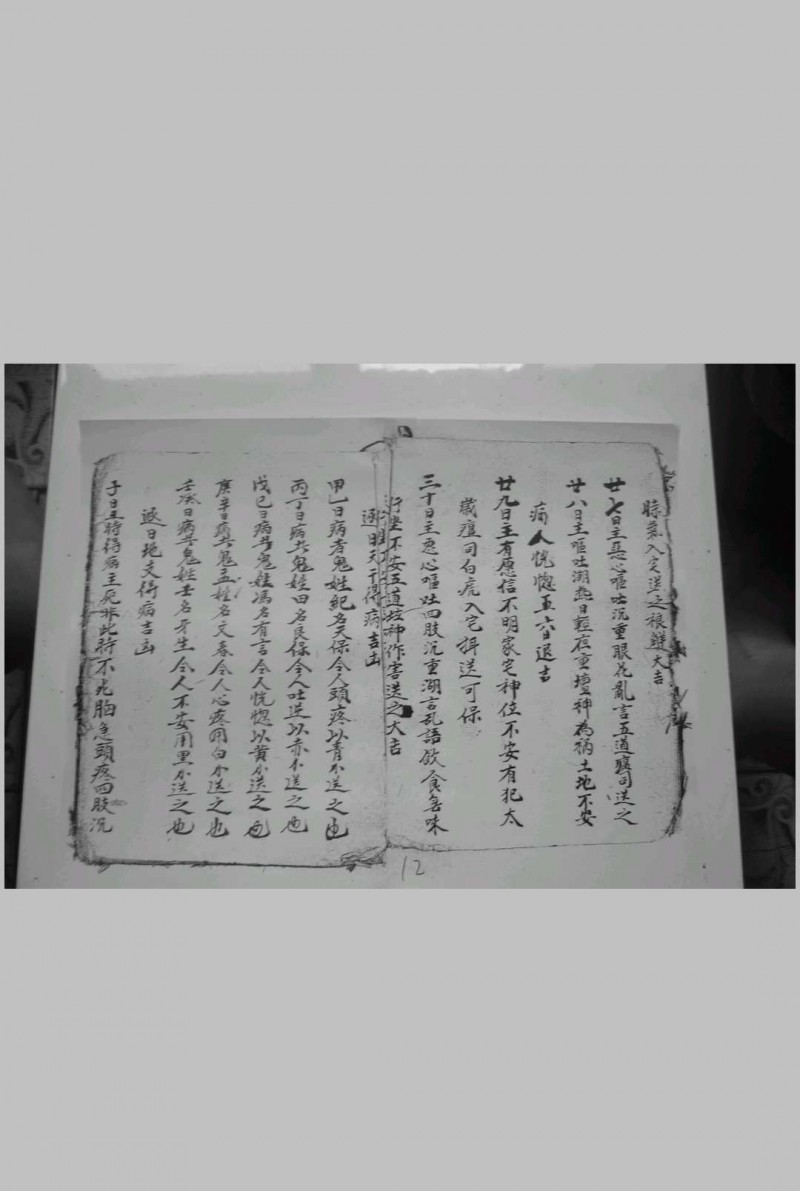 入宅送之根鮮大吉
廿七日主惡心嘔吐沉重眼花亂言五道竈司送之
廿八日主嘔吐湖热日輕夜重壇神為禍土地不安
病人恍惚五六日退吉
廿九日主有愿信不明家宅神位不安有犯太
歲瘟司白虎入宅揖送可保
三十日主惡心嘔吐四肢沉重湖言乱語飲食無味
行坐不安五道坟神作害送之大吉
逐日天干得病吉凶
甲乙日病者鬼姓紀名天保令人頭疼以青小送之也
丙丁日病者鬼姓田名良保令人吐逆以赤小送之也
戊己日病者鬼姓馮名有言令人恍惚以黄小送之也
庚辛日病者鬼孟姓名文春令人心疼用白小送之也
壬癸日病者鬼姓王名牙生令人不安用黑小送之也
逐日地支得病吉凶
子日五時得病主死非此時不死胸急頭疼四肢沉
12